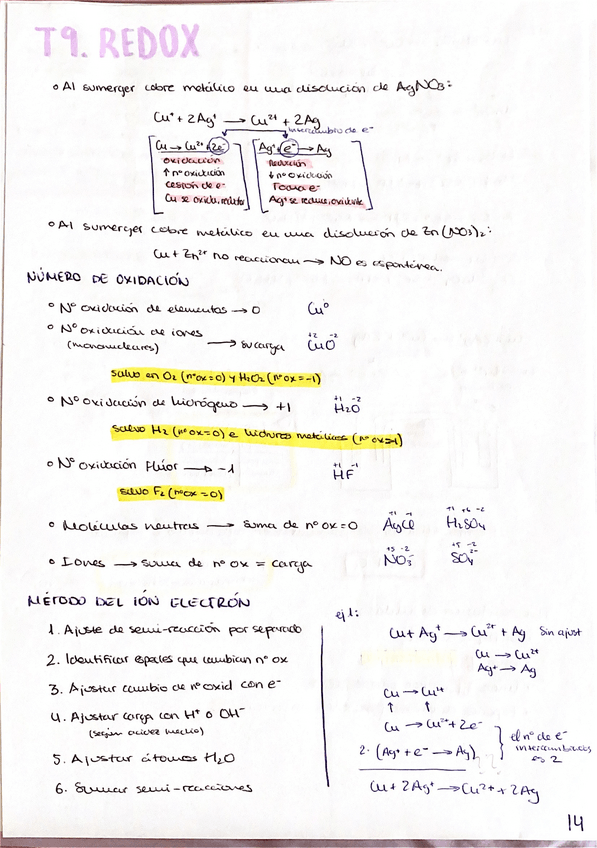 T9. REDOX
° Al sumergir cobre metálico en una disolución de AgNO3:
Cu° + 2Ag⁺ → Cu²⁺ + 2Ag
intercambio de e⁻
Cu → Cu²⁺ + 2e⁻
oxidación
↑ nº oxidación
Cesión de e⁻
Cu se oxida, reductor
Ag⁺ + e⁻ → Ag
Reducción
↓ nº oxidación
Toma e⁻
Ag⁺ se reduce, oxidante
° Al sumergir cobre metálico en una disolución de Zn(NO3)2:
Cu + Zn²⁺ no reaccionan → NO es espontánea.
NÚMERO DE OXIDACIÓN
° Nº oxidación de elementos → 0 Cu⁰
° Nº oxidación de iones → su carga +2 -2 CuO
(mononucleares)
salvo en O2 (nºox=0) y H2O2 (nºox=-1)
° Nº oxidación de hidrógeno → +1 +1 -2 H2O
salvo H2 (nºox=0) e hidruros metálicos (nºox=-1)
° Nº oxidación Flúor → -1 +1 -1 HF
salvo F2 (nºox=0)
° Moléculas neutras → suma de nº ox=0 +1 -1 AgCl +1 +6 -2 H2SO4
° Iones → suma de nº ox = carga +5 -2 NO3⁻ +5 -2 SO4²⁻
MÉTODO DEL IÓN ELECTRÓN
1. Ajuste de semi-reacción por separado
2. Identificar espeies que cambian nº ox
3. Ajustar cambio de nº oxid con e⁻
4. Ajustar carga con H⁺ o OH⁻
(según acidez medio)
5. Ajustar átomos H2O
6. Sumar semi-reacciones
ej 1:
Cu + Ag⁺ → Cu²⁺ + Ag Sin ajust
Cu → Cu²⁺
Ag⁺ → Ag
Cu → Cu²⁺
↑ ↑
Cu → Cu²⁺ + 2e⁻
2· (Ag⁺ + e⁻ → Ag)
el nº de e⁻
intercambiados
es 2
Cu + 2Ag⁺ → Cu²⁺ + 2Ag
14